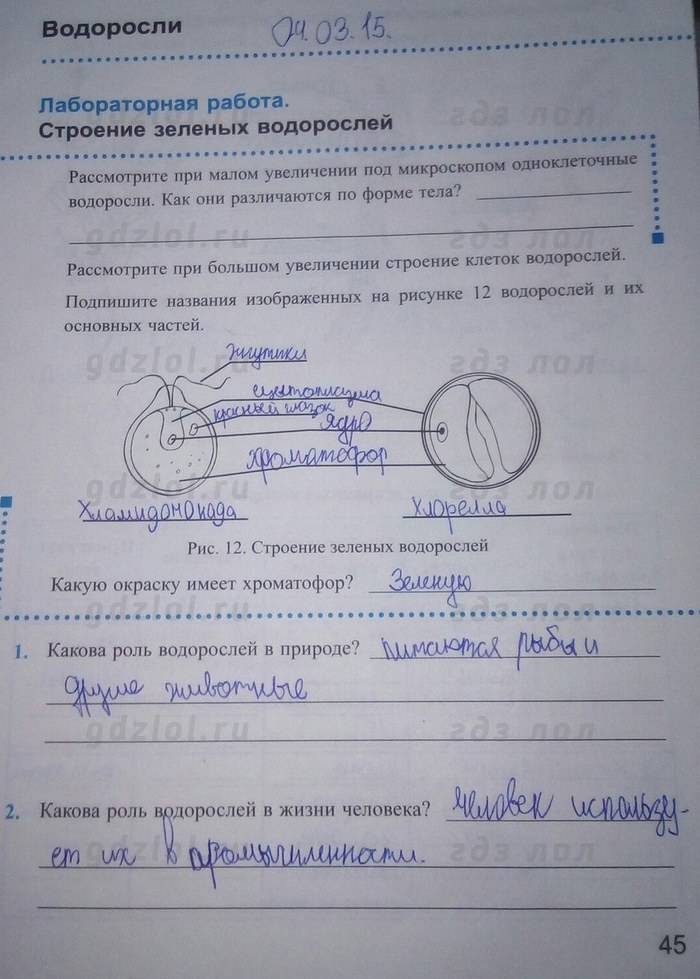 Водоросли
04.03.15.
Лабораторная работа.
Строение зеленых водорослей
гдз лол
Рассмотрите при малом увеличении под микроскопом одноклеточные
водоросли. Как они различаются по форме тела?
gdzlol.ru гдз лол
Рассмотрите при большом увеличении строение клеток водорослей.
Подпишите названия изображенных на рисунке 12 водорослей и их
основных частей.
gdzlol.ru гдз лол
жгутики
цитоплазма
красный глазок
Ядро
хроматофор
gdzlol.ru гдз лол
Хламидомонада Хлорелла
Рис. 12. Строение зеленых водорослей
Какую окраску имеет хроматофор? Зеленую
gdzlol.ru гдз лол
1. Какова роль водорослей в природе? питаются рыбы и
другие животные
gdzlol.ru гдз лол
2. Какова роль водорослей в жизни человека? человек использу-
ет их в промышленности.
gdzlol.ru гдз лол
45